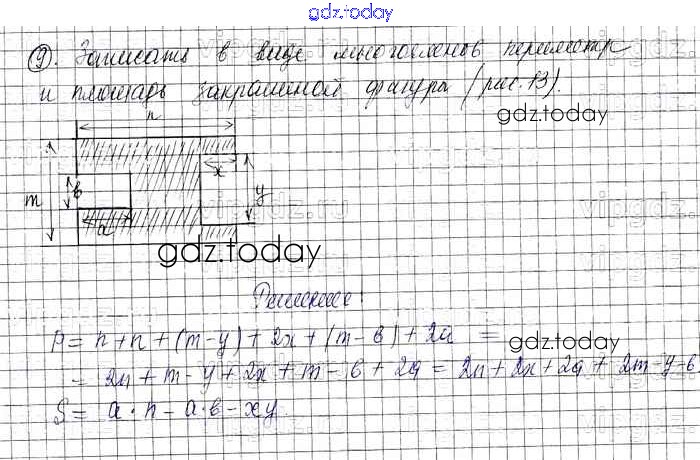 gdz.today
9. Записать в виде многочленов периметр
и площадь закрашеной фигуры (рис. 13).
gdz.today
n
x
в
m
y
a
gdz.today
Решение:
P = n+n + (m-y) + 2x + (m-в) + 2a =
gdz.today
= 2n + m - y + 2x + m - в + 2a = 2n + 2x + 2a + 2m - y - в
S = a · n - a · в - xy